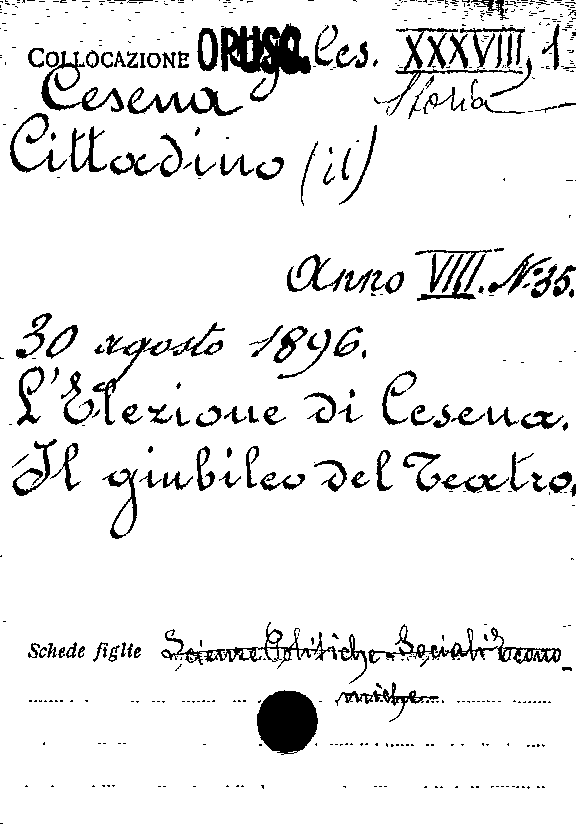 COLLOCAZIONE OPUSC. Ces. XXXVIII, 1
Cesena Storia
Cittadino (il)
Anno VIII. N. 35.
30 agosto 1896.
L'Elezione di Cesena.
Il giubileo del Teatro.
Schede figlie Scienze Politiche Sociali Econo-
miche